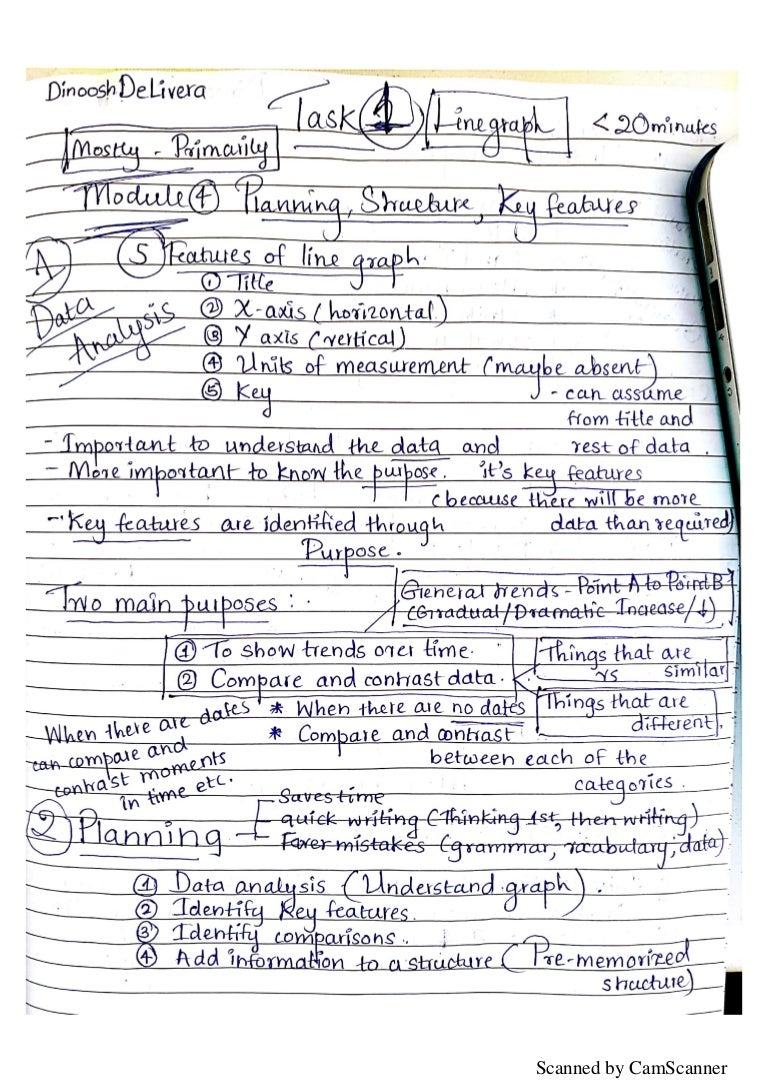 Dinoosh DeLivera
Task 1 Line graph < 20 minutes
Mostly - Primarily
Module 4 Planning, Structure, Key features
A 5 Features of line graph.
Data Analysis
① Title
② X-axis (horizontal)
③ Y axis (vertical)
④ Units of measurement (maybe absent)
⑤ Key - can assume
from title and
- Important to understand the data and rest of data.
- More important to know the purpose. it's key features
(because there will be more
- Key features are identified through data than required)
Purpose.
General trends - Point A to Point B
Two main purposes: (Gradual/Dramatic Increase/↓)
① To show trends over time. Things that are
② Compare and contrast data. vs similar
When there are dates * When there are no dates Things that are
can compare and * Compare and contrast different.
contrast moments between each of the
in time etc. categories.
Saves time
2 Planning quick writing (Thinking 1st, then writing)
Fewer mistakes (grammar, vocabulary, data)
① Data analysis (Understand graph).
② Identify Key features.
③ Identify comparisons.
④ Add information to a structure (Pre-memorized
structure)
Scanned by CamScanner